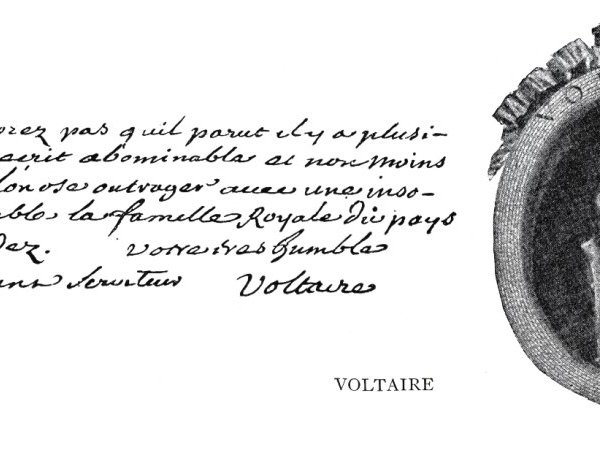 orez pas quil parut il y a plusi-
ecrit abominable et non moins
l'on ose outrager avec une inso-
able la famille Royale du pays
dez. votre tres humble
serviteur Voltaire
VOLTAIRE
VO